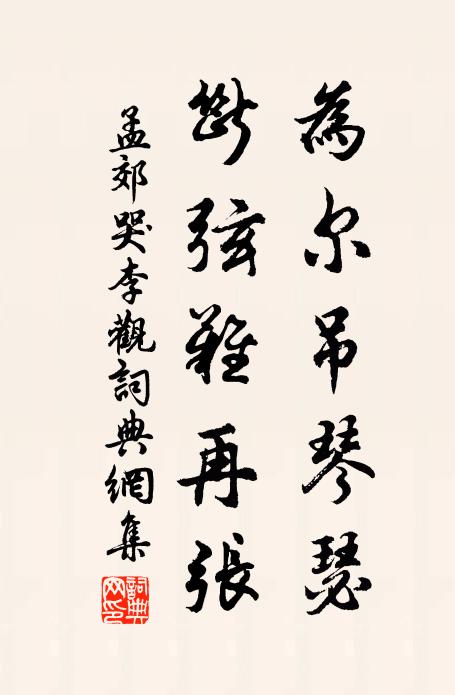 為尔吊琴瑟
斷弦難再張
孟郊哭李觀詞典網集
詞典網印